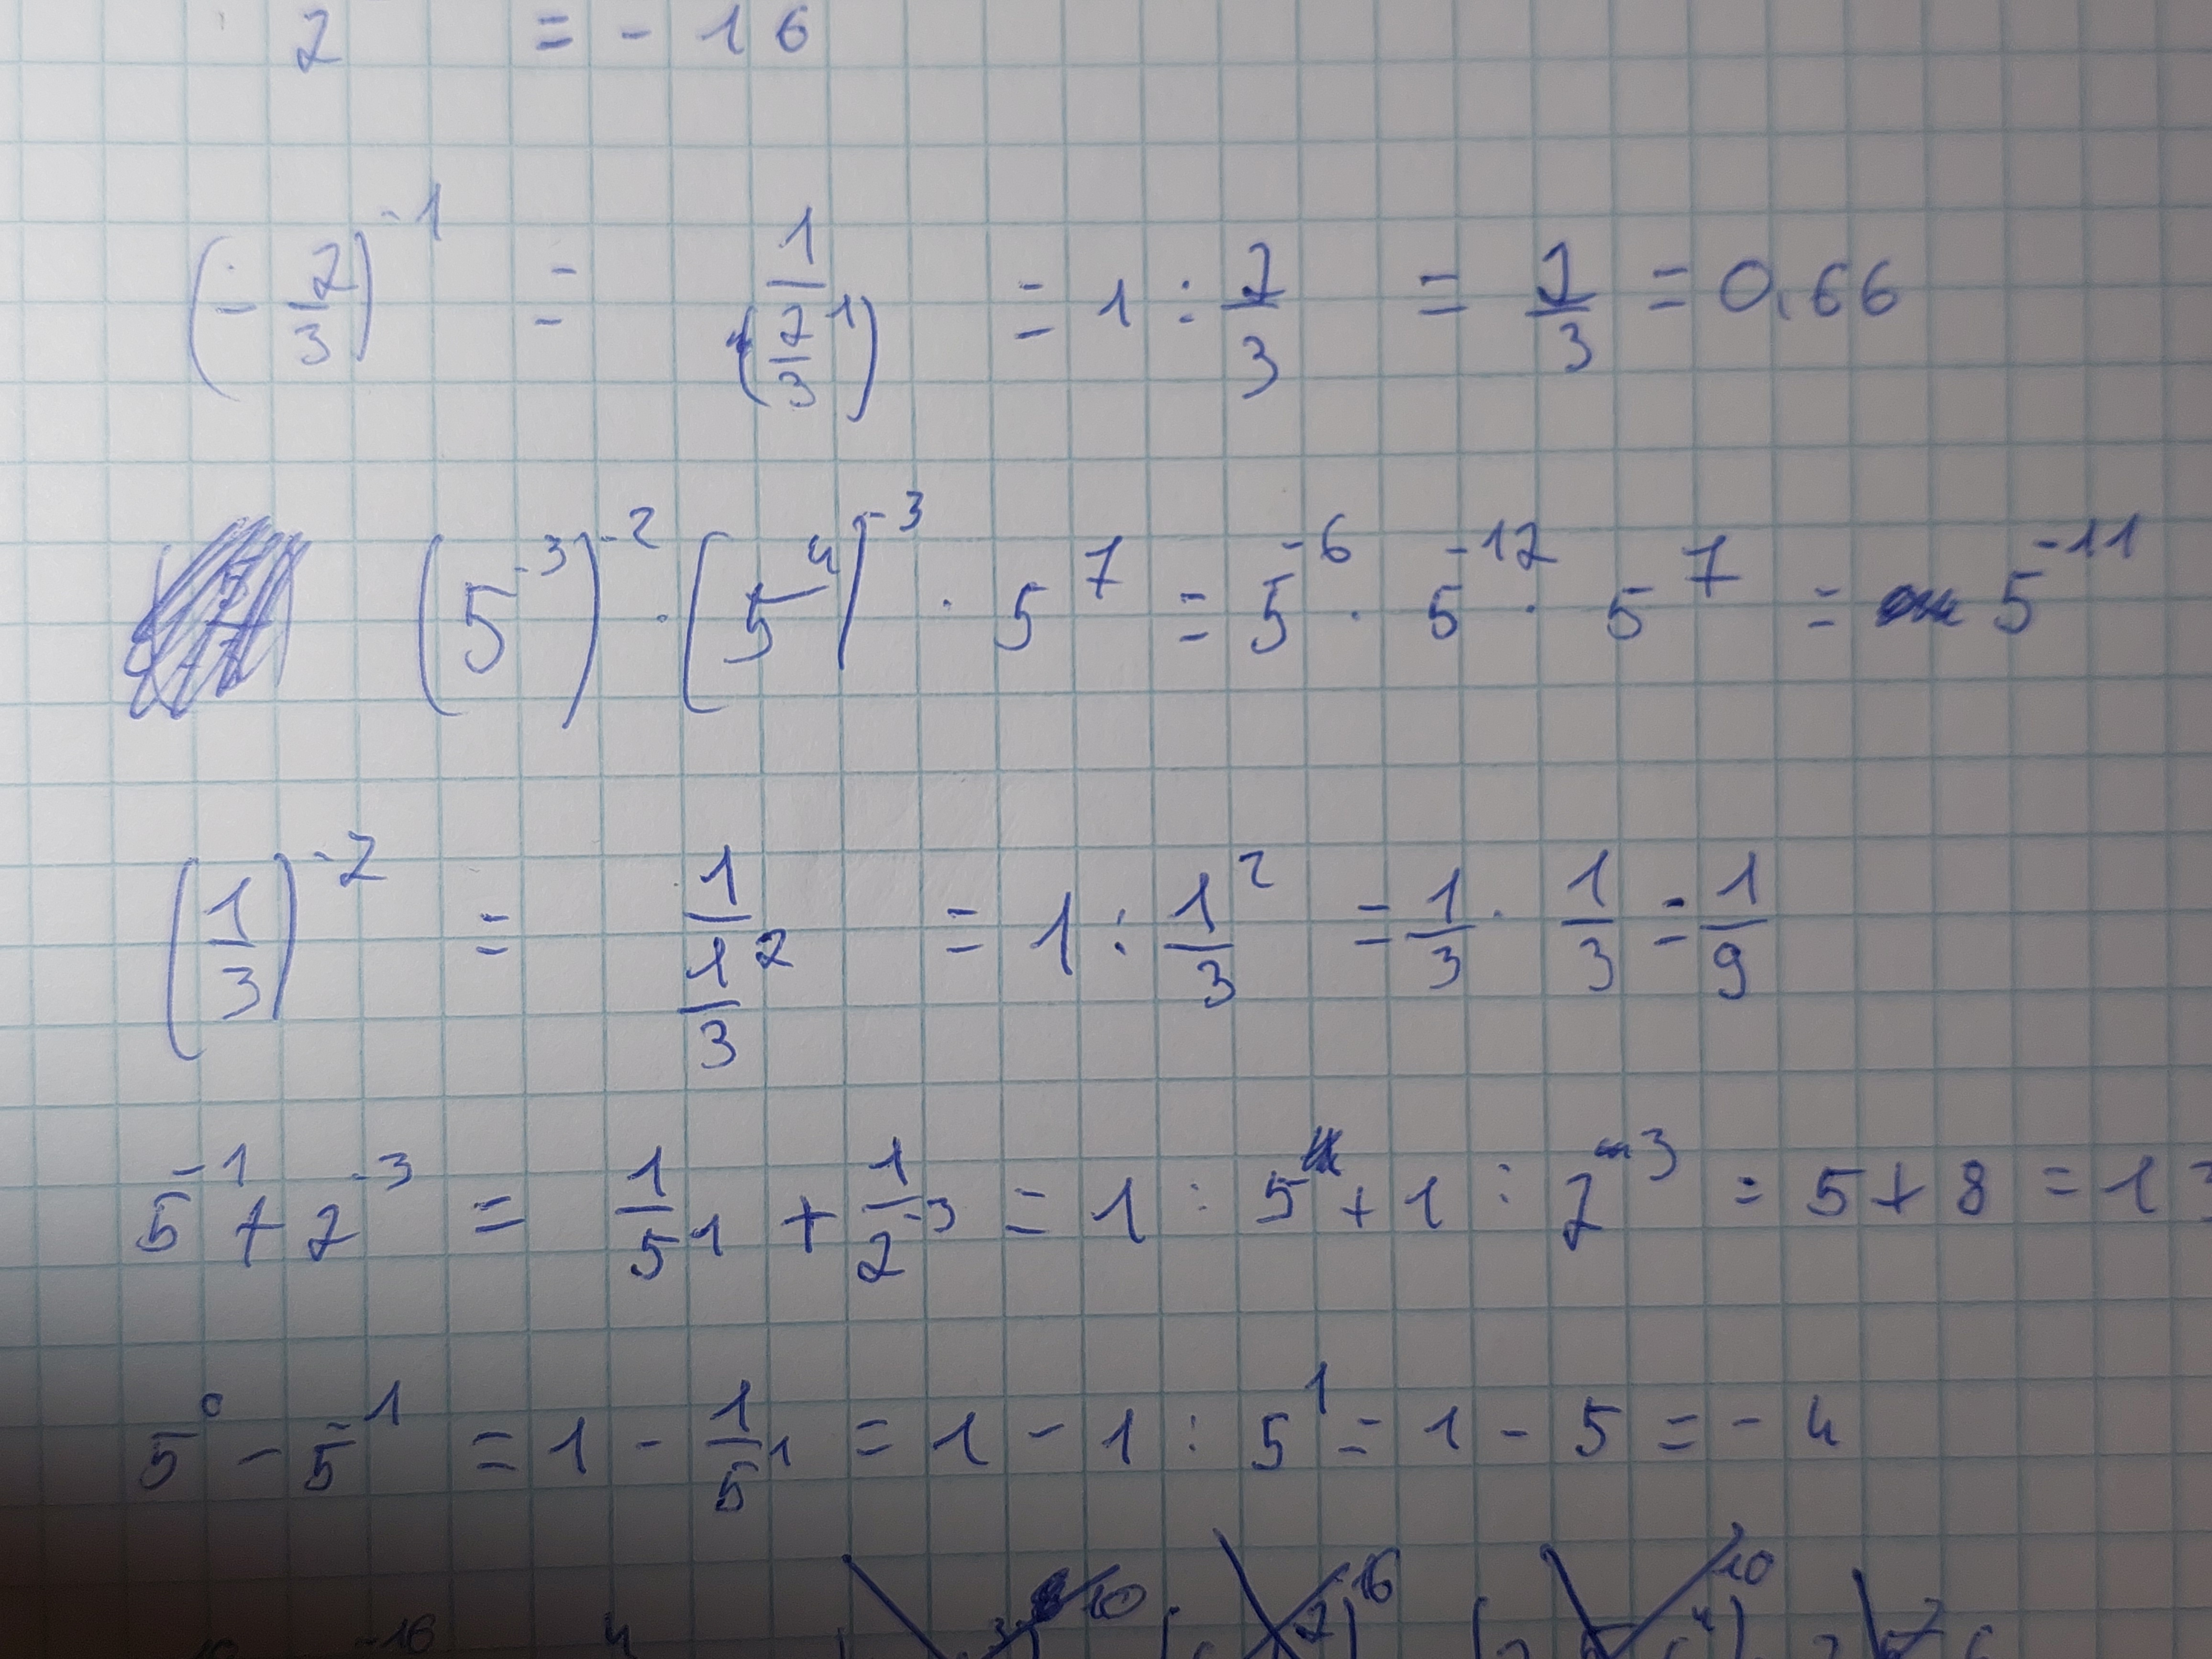 2 = - 16
(- 2/3)^-1 = 1/(2/3^1) = 1 : 2/3 = 2/3 = 0,66
(5^-3)^-2 · (5^4)^-3 · 5^7 = 5^-6 · 5^-12 · 5^7 = 5^-11
(1/3)^-2 = 1/(1/3^2) = 1 : 1/3^2 = 1/3 · 1/3 = 1/9
5^-1 + 2^-3 = 1/5^1 + 1/2^-3 = 1 : 5 + 1 : 2^-3 = 5 + 8 = 13
5^0 - 5^-1 = 1 - 1/5^1 = 1 - 1 : 5^1 = 1 - 5 = - 4
-16 4 10 16 10